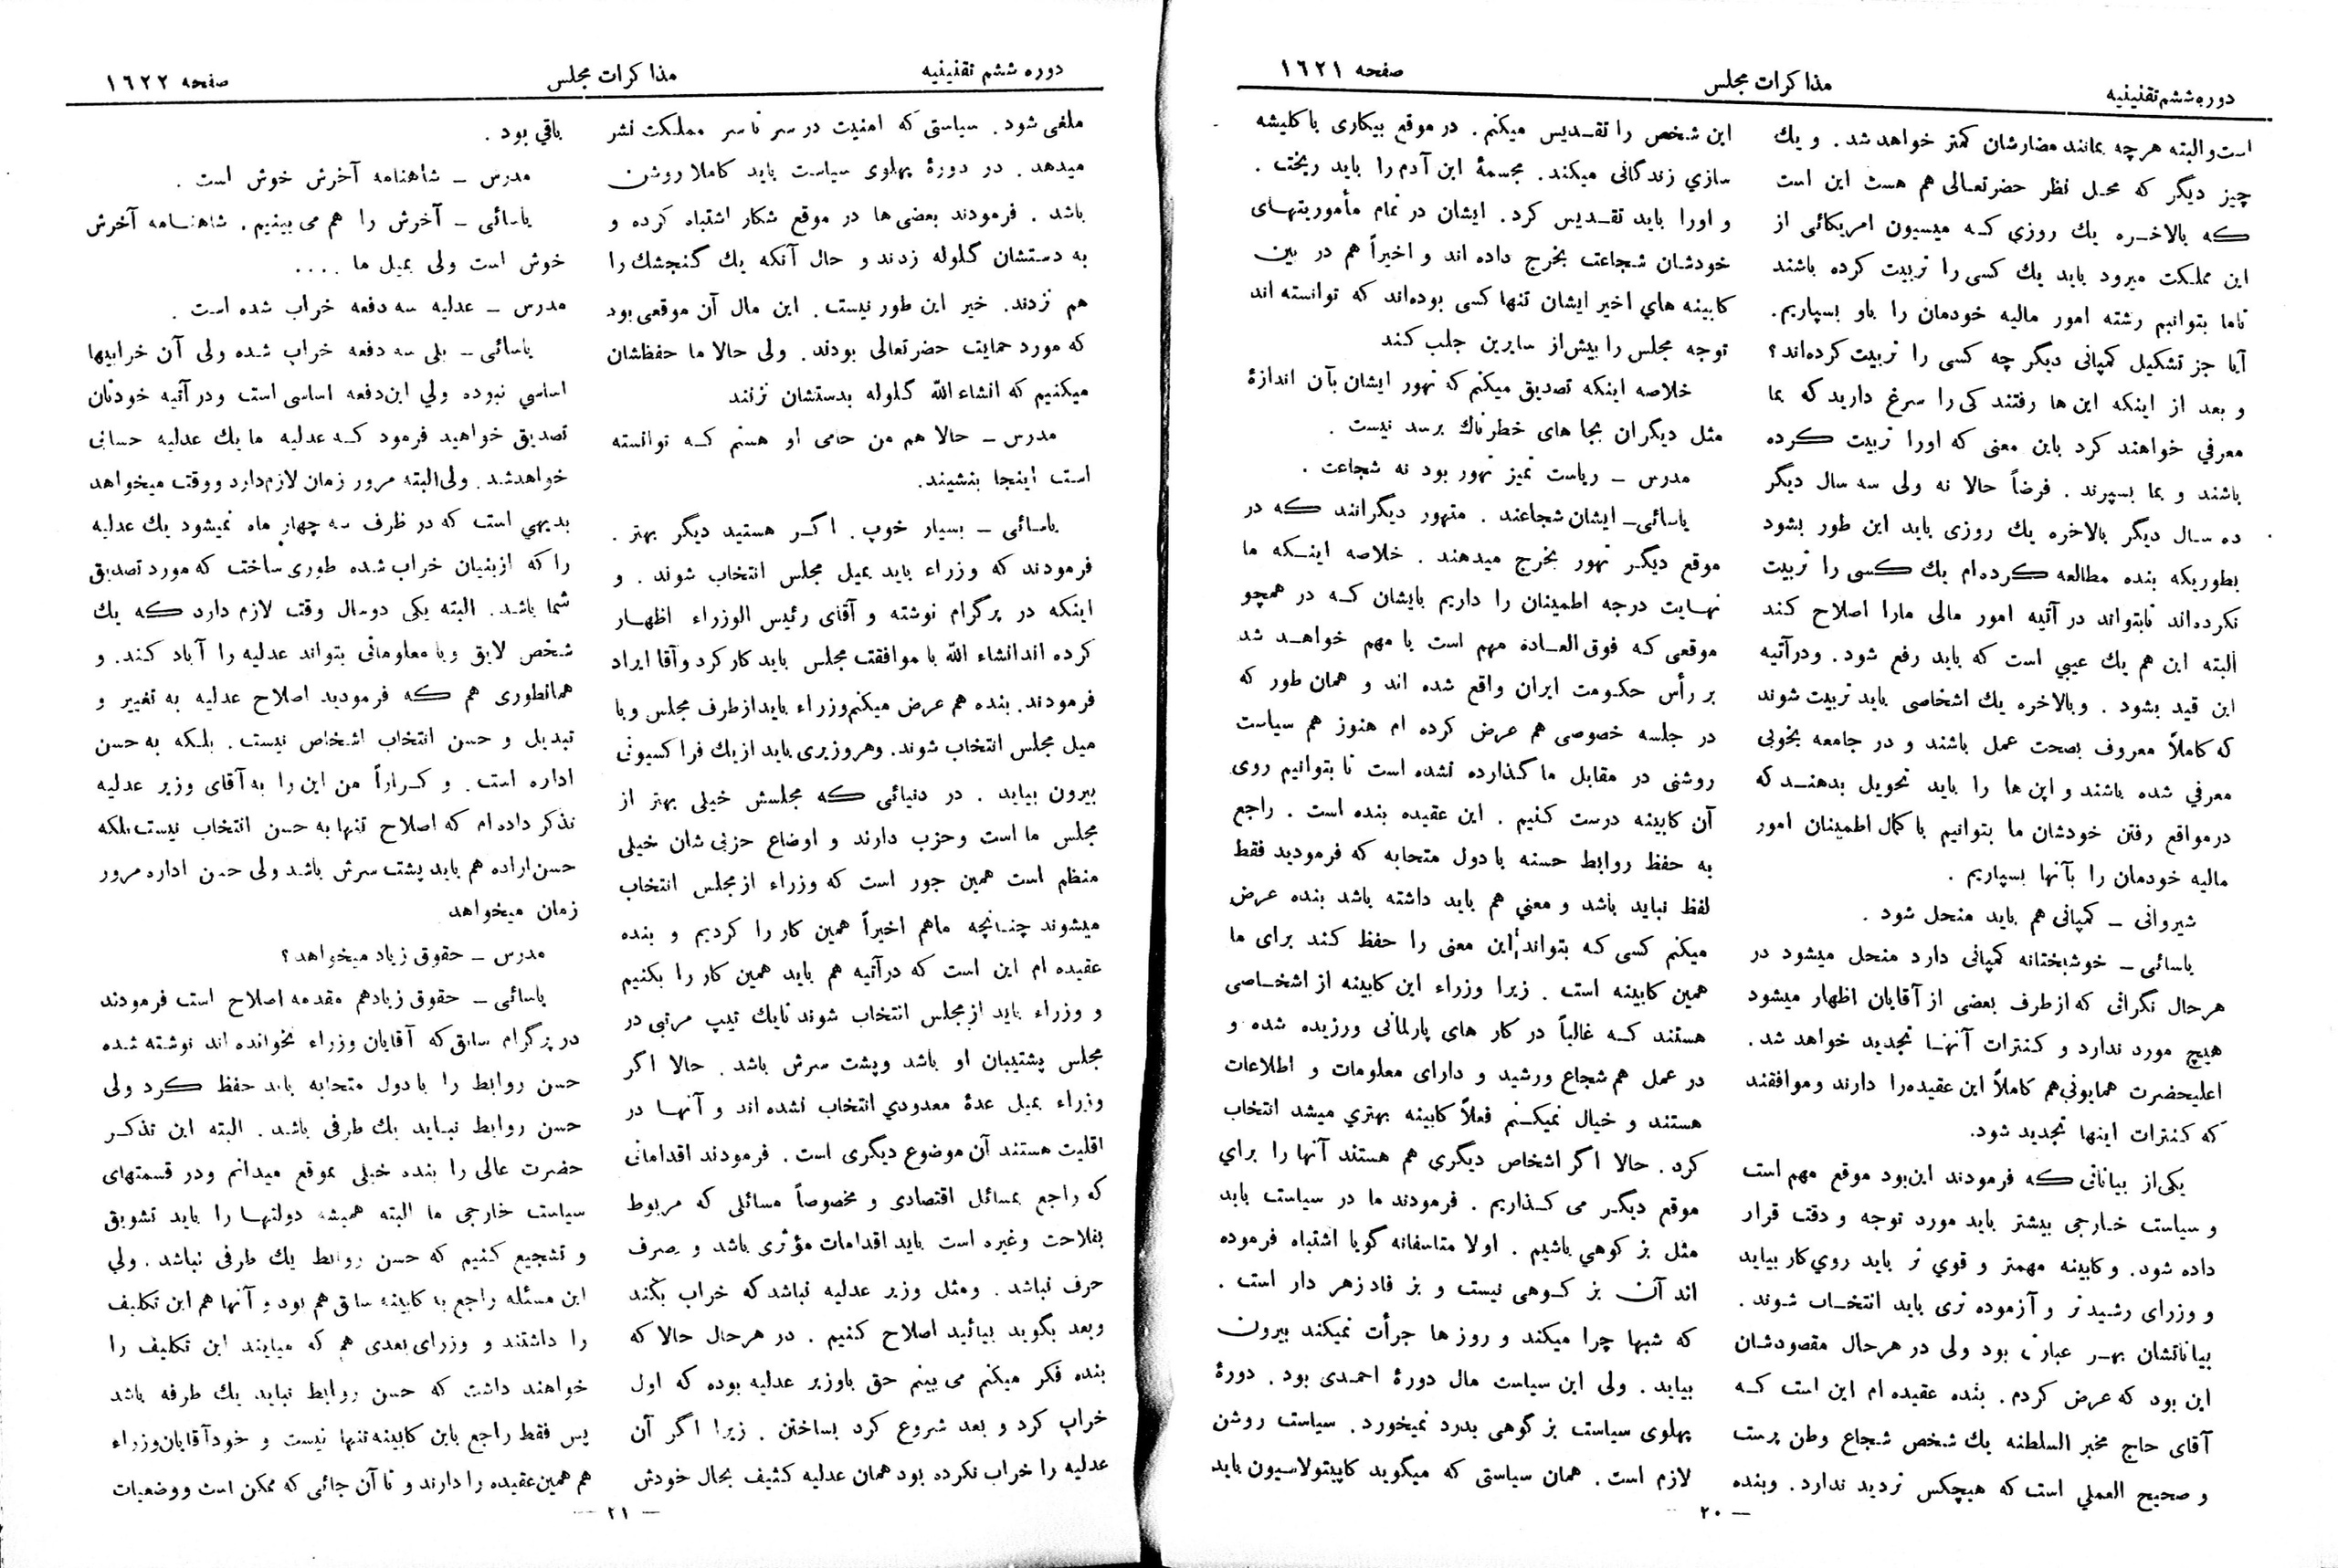 دوره ششم تقنینیه
مذاکرات مجلس
صفحه ۱۶۲۱
است و البته هر چه بمانند مضارشان کمتر خواهد شد. و یك
چیز دیگر که محل نظر حضرتعالی هم هست این است
که بالاخره یك روزی که میسیون امریکائی از
این مملکت میرود باید یك کسی را تربیت کرده باشند
تاما بتوانیم رشته امور مالیه خودمان را باو بسپاریم.
آیا جز تشکیل کمپانی دیگر چه کسی را تربیت کرده‌اند؟
و بعد از اینکه این ها رفتند کی را سرغ دارید که بما
معرفي خواهند کرد باین معنی که اورا تربیت کرده
باشند و بما بسپرند. فرضاً حالا نه ولی سه سال دیگر
ده سال دیگر بالاخره یك روزی باید این طور بشود
بطوریکه بنده مطالعه کرده‌ام یك کسی را تربیت
نکرده‌اند تابتواند در آتیه امور مالی مارا اصلاح کند
البته این هم یك عیبي است که باید رفع شود. ودرآتیه
این قید بشود. وبالاخره یك اشخاصی باید تربیت شوند
که کاملاً معروف بصحت عمل باشند و در جامعه بخوبی
معرفي شده باشند و این ها را باید تحویل بدهند که
درمواقع رفتن خودشان ما بتوانیم با کمال اطمینان امور
مالیه خودمان را بآنها بسپاریم.
شیروانی ـ کمپانی هم باید منحل شود.
یاسائی ـ خوشبختانه کمپانی دارد منحل میشود در
هرحال نگرانی که ازطرف بعضی از آقایان اظهار میشود
هیچ مورد ندارد و کنترات آنها تجدید خواهد شد.
اعلیحضرت همایونی‌هم کاملاً این عقیده‌را دارند وموافقند
که کنترات اینها تجدید شود.
یکی‌از بیاناتی که فرمودند این‌بود موقع مهم است
و سیاست خارجی بیشتر باید مورد توجه و دقت قرار
داده شود. وکابینه مهمتر و قوي تر باید روي‌کار بیاید
و وزرای رشیدتر و آزموده تری باید انتخاب شوند.
بیاناتشان بهر عبارت بود ولی در هرحال مقصودشان
این بود که عرض کردم. بنده عقیده ام این است که
آقای حاج مخبر السلطنه یك شخص شجاع وطن پرست
و صحیح العملي است که هیچکس تردید ندارد. وبنده
این شخص را تقدیس میکنم. در موقع بیکاری با کلیشه
سازي زندگانی میکند. مجسمهٔ این آدم را باید ریخت.
و اورا باید تقدیس کرد. ایشان در تمام مأموریتهای
خودشان شجاعت بخرج داده اند و اخیراً هم در بین
کابینه هاي اخیر ایشان تنها کسی بوده‌اند که توانسته اند
توجه مجلس را بیش‌از سایرین جلب کند
خلاصه اینکه تصدیق میکنم که تهور ایشان بآن اندازهٔ
مثل دیگران بجا های خطرناك برسد نیست.
مدرس ـ ریاست تمیز تهور بود نه شجاعت.
یاسائی ـ ایشان شجاعند. متهور دیگرانند که در
موقع دیگر تهور بخرج میدهند. خلاصه اینکه ما
نهایت درجه اطمینان را داریم بایشان که در همچو
موقعی که فوق العاده مهم است یا مهم خواهد شد
بر رأس حکومت ایران واقع شده اند و همان طور که
در جلسه خصوصی هم عرض کرده ام هنوز هم سیاست
روشنی در مقابل ما گذارده نشده است تا بتوانیم روی
آن کابینه درست کنیم. این عقیده بنده است. راجع
به حفظ روابط حسنه با دول متحابه که فرمودید فقط
لفظ نباید باشد و معني هم باید داشته باشد بنده عرض
میکنم کسی که بتواند این معنی را حفظ کند برای ما
همین کابینه است. زیرا وزراء این کابینه از اشخاصی
هستند که غالباً در کار های پارلمانی ورزیده شده و
در عمل هم شجاع ورشید و دارای معلومات و اطلاعات
هستند و خیال نمیکنم فعلاً کابینه بهتري میشد انتخاب
کرد. حالا اگر اشخاص دیگري هم هستند آنها را براي
موقع دیگر می گذاریم. فرمودند ما در سیاست باید
مثل بز کوهي باشیم. اولا متاسفانه گویا اشتباه فرموده
اند آن بز کوهی نیست و بز فادزهر دار است.
که شبها چرا میکند و روز ها جرأت نمیکند بیرون
بیاید. ولی این سیاست مال دورهٔ احمدی بود. دورهٔ
پهلوی سیاست بز کوهی بدرد نمیخورد. سیاست روشن
لازم است. همان سیاستی که میگوید کاپیتولاسیون باید
ـ ۲۰
دوره ششم تقنینیه
مذاکرات مجلس
صفحه ۱۶۲۲
ملغی شود. سیاستی که امنیت در سر تا سر مملکت نشر
میدهد. در دورهٔ پهلوی سیاست باید کاملا روشن
باشد. فرمودند بعضی ها در موقع شکار اشتباه کرده و
به دستشان گلوله زدند و حال آنکه یك گنجشك را
هم نزدند. خیر این طور نیست. این مال آن موقعی بود
که مورد حمایت حضرتعالی بودند. ولی حالا ما حفظشان
میکنیم که انشاءالله گلوله بدستشان نزنند
مدرس ـ حالا هم من حامی او هستم که توانسته
است اینجا بنشیند.
یاسائی ـ بسیار خوب. اگر هستید دیگر بهتر.
فرمودند که وزراء باید بمیل مجلس انتخاب شوند. و
اینکه در پرگرام نوشته و آقای رئیس الوزراء اظهار
کرده اندانشاء الله با موافقت مجلس باید کار کرد وآقا ایراد
فرمودند. بنده هم عرض میکنم‌وزراء بایدازطرف مجلس وبا
میل مجلس انتخاب شوند. وهروزیری باید ازیك فراکسیونی
بیرون بیاید. در دنیائی که مجلسش خیلی بهتر از
مجلس ما است وحزب دارند و اوضاع حزبی شان خیلی
منظم است همین جور است که وزراء از مجلس انتخاب
میشوند چنانچه ماهم اخیراً همین کار را کردیم و بنده
عقیده ام این است که درآتیه هم باید همین کار را بکنیم
و وزراء باید از مجلس انتخاب شوند تایك تیپ مرتبی در
مجلس پشتیبان او باشد وپشت سرش باشد. حالا اگر
وزراء بمیل عدهٔ معدودي انتخاب نشده اند و آنها در
اقلیت هستند آن موضوع دیگری است. فرمودند اقداماتی
که راجع بمسائل اقتصادی و مخصوصاً مسائلی که مربوط
بفلاحت وغیره است باید اقدامات مؤثری باشد و بصرف
حرف نباشد. ومثل وزیر عدلیه نباشد که خراب بکند
وبعد بگوید بیائید اصلاح کنیم. در هرحال حالا که
بنده فکر میکنم می بینم حق باوزیر عدلیه بوده که اول
خراب کرد و بعد شروع کرد بساختن. زیرا اگر آن
عدلیه را خراب نکرده بود همان عدلیه کثیف بحال خودش
باقي بود.
مدرس ـ شاهنامه آخرش خوش است.
یاسائی ـ آخرش را هم می بینیم. شاهنامه آخرش
خوش است ولی بمیل ما ....
مدرس ـ عدلیه سه دفعه خراب شده است.
یاسائی ـ بلی سه دفعه خراب شده ولی آن خرابیها
اساسي نبوده ولي این‌دفعه اساسی است ودر آتیه خودتان
تصدیق خواهید فرمود که عدلیه ما یك عدلیه حسابی
خواهدشد. ولی البته مرور زمان لازم‌دارد ووقت میخواهد
بدیهي است که در ظرف سه چهار ماه نمیشود یك عدلیه
را که ازبنیان خراب شده طوری ساخت که مورد تصدیق
شما باشد. البته یکی دوسال وقت لازم دارد که یك
شخص لایق وبا معلوماتی بتواند عدلیه را آباد کند. و
همانطوری هم که فرمودید اصلاح عدلیه به تغییر و
تبدیل و حسن انتخاب اشخاص نیست. بلکه به حسن
اداره است. و کراراً من این را به آقای وزیر عدلیه
تذکر داده ام که اصلاح تنها به حسن انتخاب نیست بلکه
حسن اراده هم باید پشت سرش باشد ولی حسن اداره مرور
زمان میخواهد
مدرس ـ حقوق زیاد میخواهد؟
یاسائی ـ حقوق زیادهم مقدمه اصلاح است فرمودند
در پرگرام سابق که آقایان وزراء نخوانده اند نوشته شده
حسن روابط را با دول متحابه باید حفظ کرد ولی
حسن روابط نباید یك طرفی باشد. البته این تذکر
حضرت عالی را بنده خیلی بموقع میدانم ودر قسمتهای
سیاست خارجی ما البته همیشه دولتها را باید تشویق
و تشجیع کنیم که حسن روابط یك طرفی نباشد. ولي
این مسئله راجع به کابینه سابق هم بود و آنها هم این تکلیف
را داشتند و وزرای بعدی هم که میایند این تکلیف را
خواهند داشت که حسن روابط نباید یك طرفه باشد
پس فقط راجع باین کابینه تنها نیست و خودآقایان‌وزراء
هم همین عقیده را دارند و تا آن جائی که ممکن است ووضعیات
ـ ۲۱ ـ